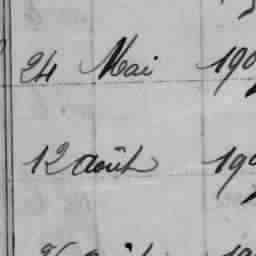 24 Mai 190
12 août 190